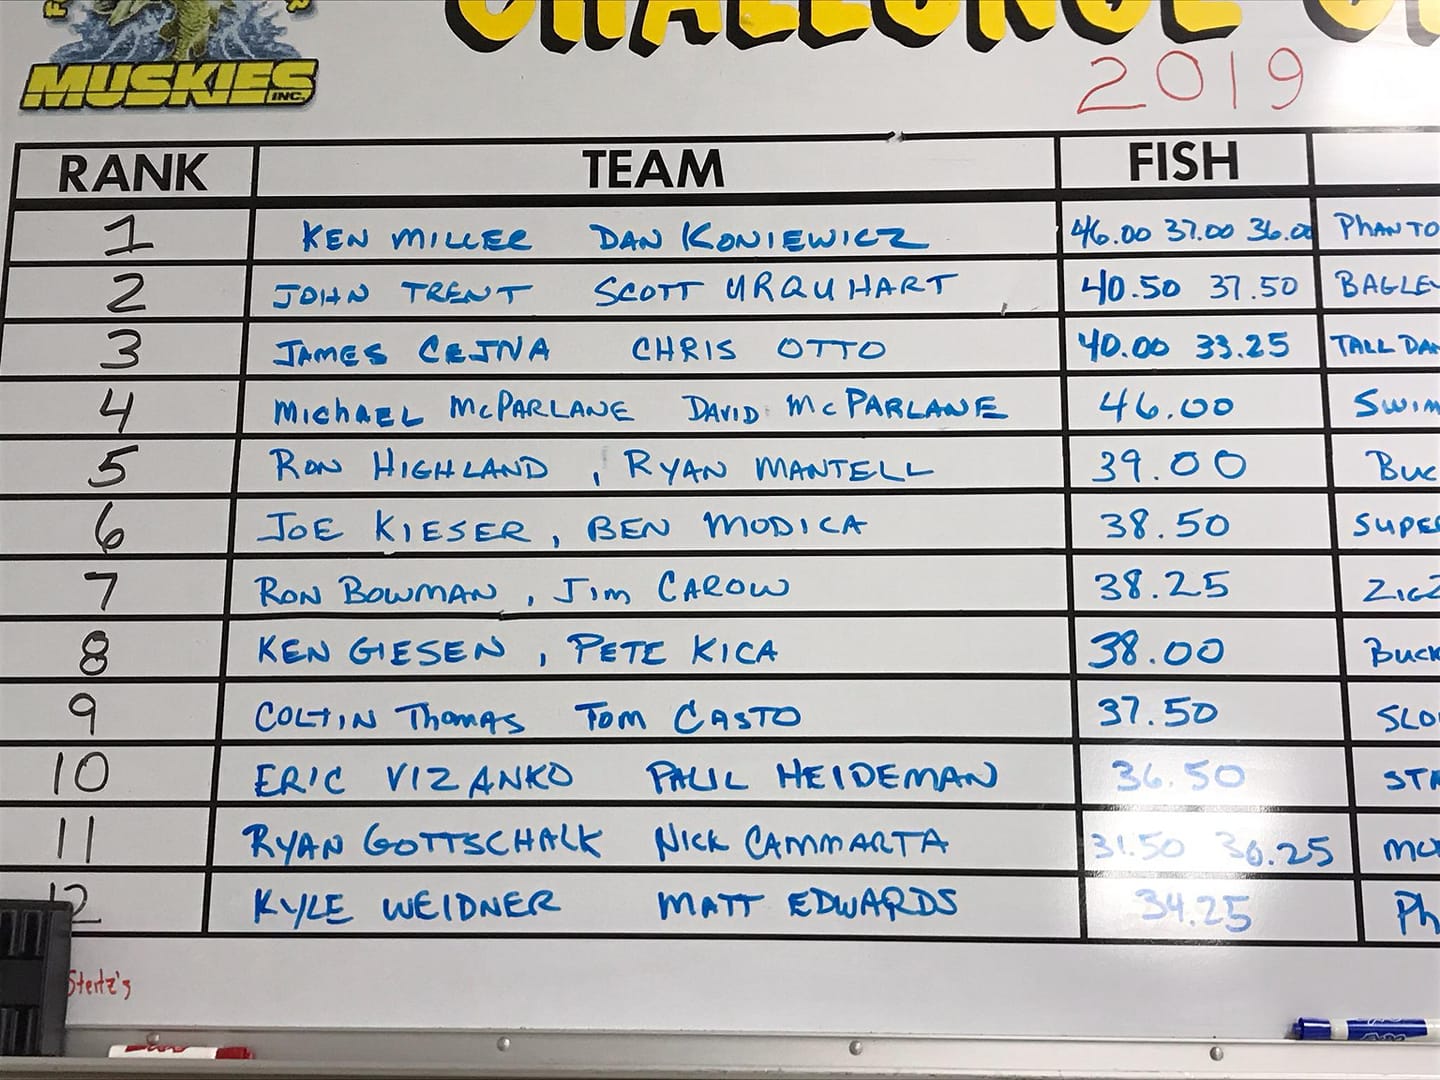 CHALLENGE
MUSKIES INC.
2019
RANK TEAM FISH
1 KEN MILLER DAN KONIEWICZ 46.00 37.00 36.00 PHANTO
2 JOHN TRENT SCOTT URQUHART 40.50 37.50 BAGLEY
3 JAMES CEJNA CHRIS OTTO 40.00 33.25 TALL DA
4 MICHAEL McPARLANE DAVID McPARLANE 46.00 SWIM
5 RON HIGHLAND , RYAN MANTELL 39.00 BUC
6 JOE KIESER , BEN MODICA 38.50 SUPER
7 RON BOWMAN , JIM CAROW 38.25 ZIGZ
8 KEN GIESEN , PETE KICA 38.00 BUCK
9 COLTIN THOMAS TOM CASTO 37.50 SLO
10 ERIC VIZANKO PAUL HEIDEMAN 36.50 STA
11 RYAN GOTTSCHALK NICK CAMMARTA 31.50 30.25 MU
12 KYLE WEIDNER MATT EDWARDS 34.25 Ph
Stertz's